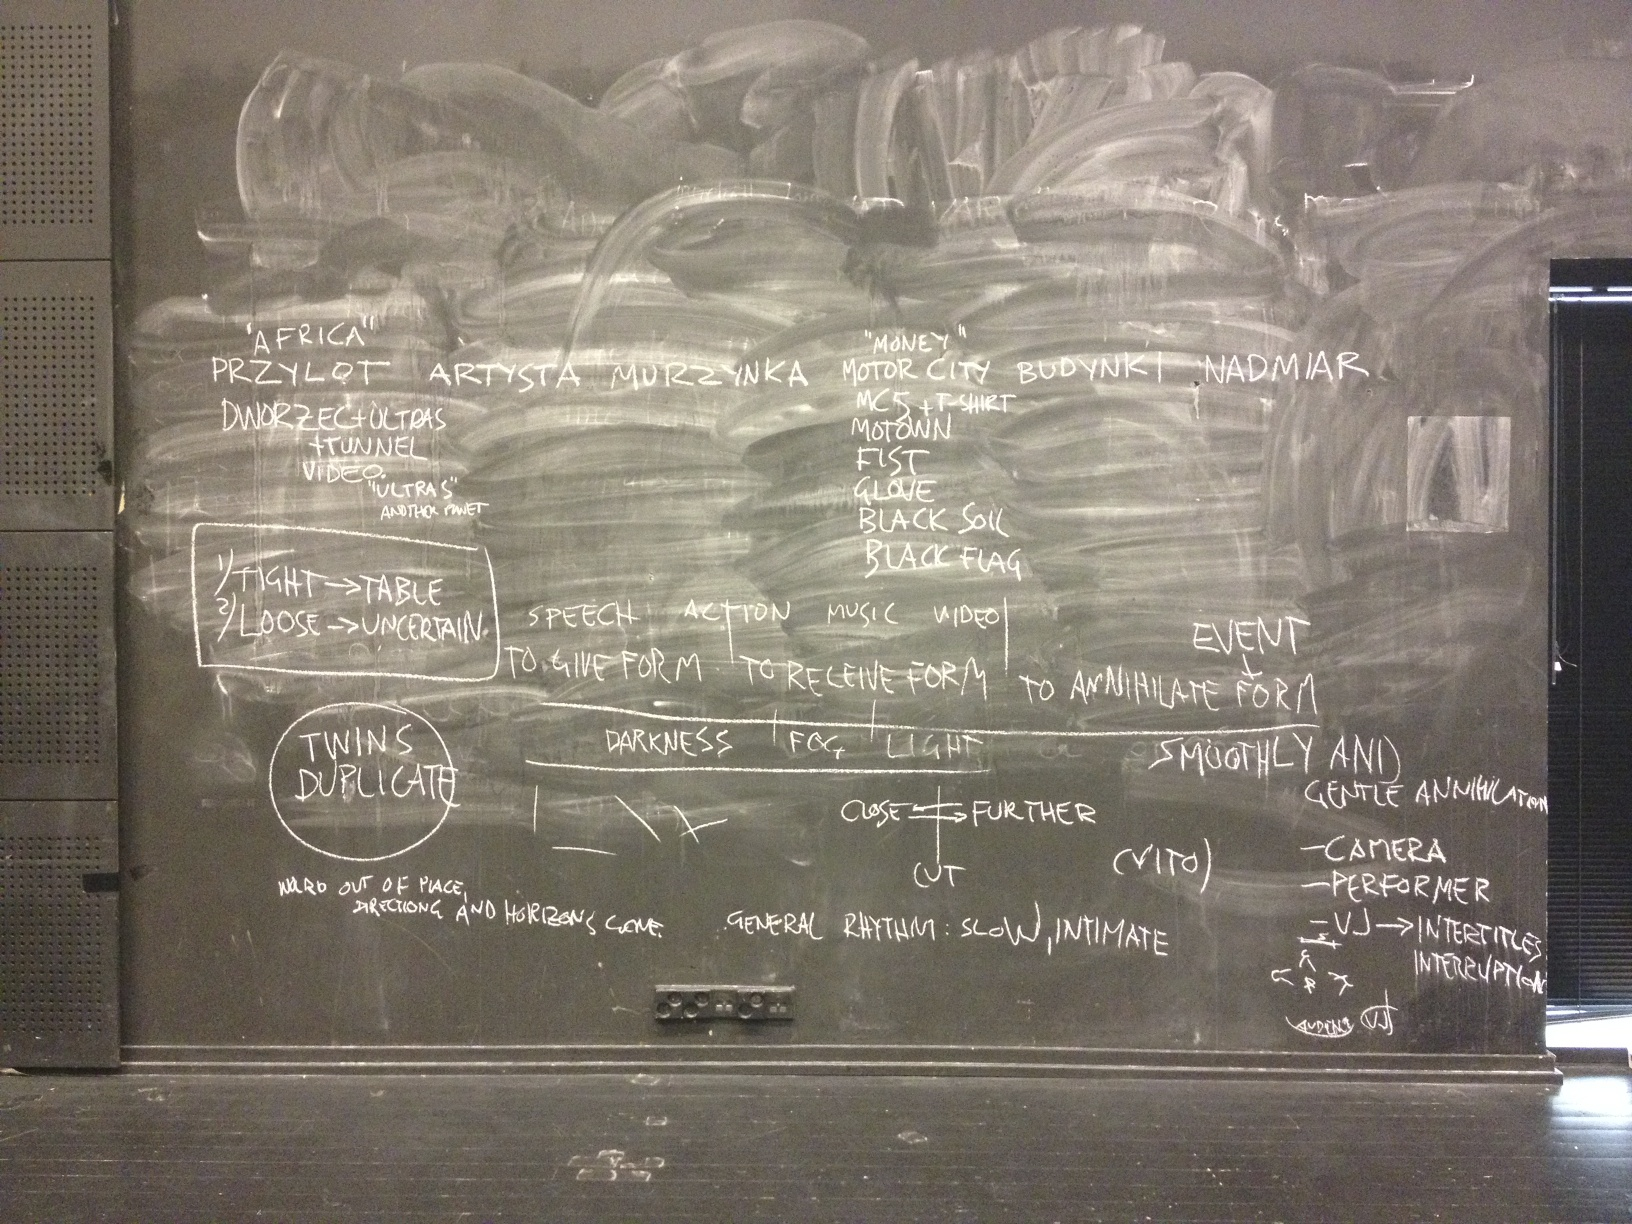 "AFRICA"
"MONEY"
PRZYLOT ARTYSTA MURZYNKA MOTOR CITY BUDYNKI NADMIAR
DWORZEC+ULTRAS
+TUNNEL
VIDEO
"ULTRAS"
ANOTHER PLANET
MC5 + T-SHIRT
MOTOWN
FIST
GLOVE
BLACK SOIL
BLACK FLAG
1) TIGHT → TABLE
2) LOOSE → UNCERTAIN
SPEECH ACTION MUSIC VIDEO
EVENT
TO GIVE FORM TO RECEIVE FORM TO ANNIHILATE FORM
TWINS
DUPLICATE
DARKNESS FOG LIGHT
SMOOTHLY AND
GENTLE ANNIHILATION
CLOSE FURTHER
CUT
(VITO)
-CAMERA
-PERFORMER
-VJ → INTERTITLES
INTERRUPTION
OUT OF PLACE,
DIRECTIONS AND HORIZONS GONE
GENERAL RHYTHM: SLOW, INTIMATE
VJ